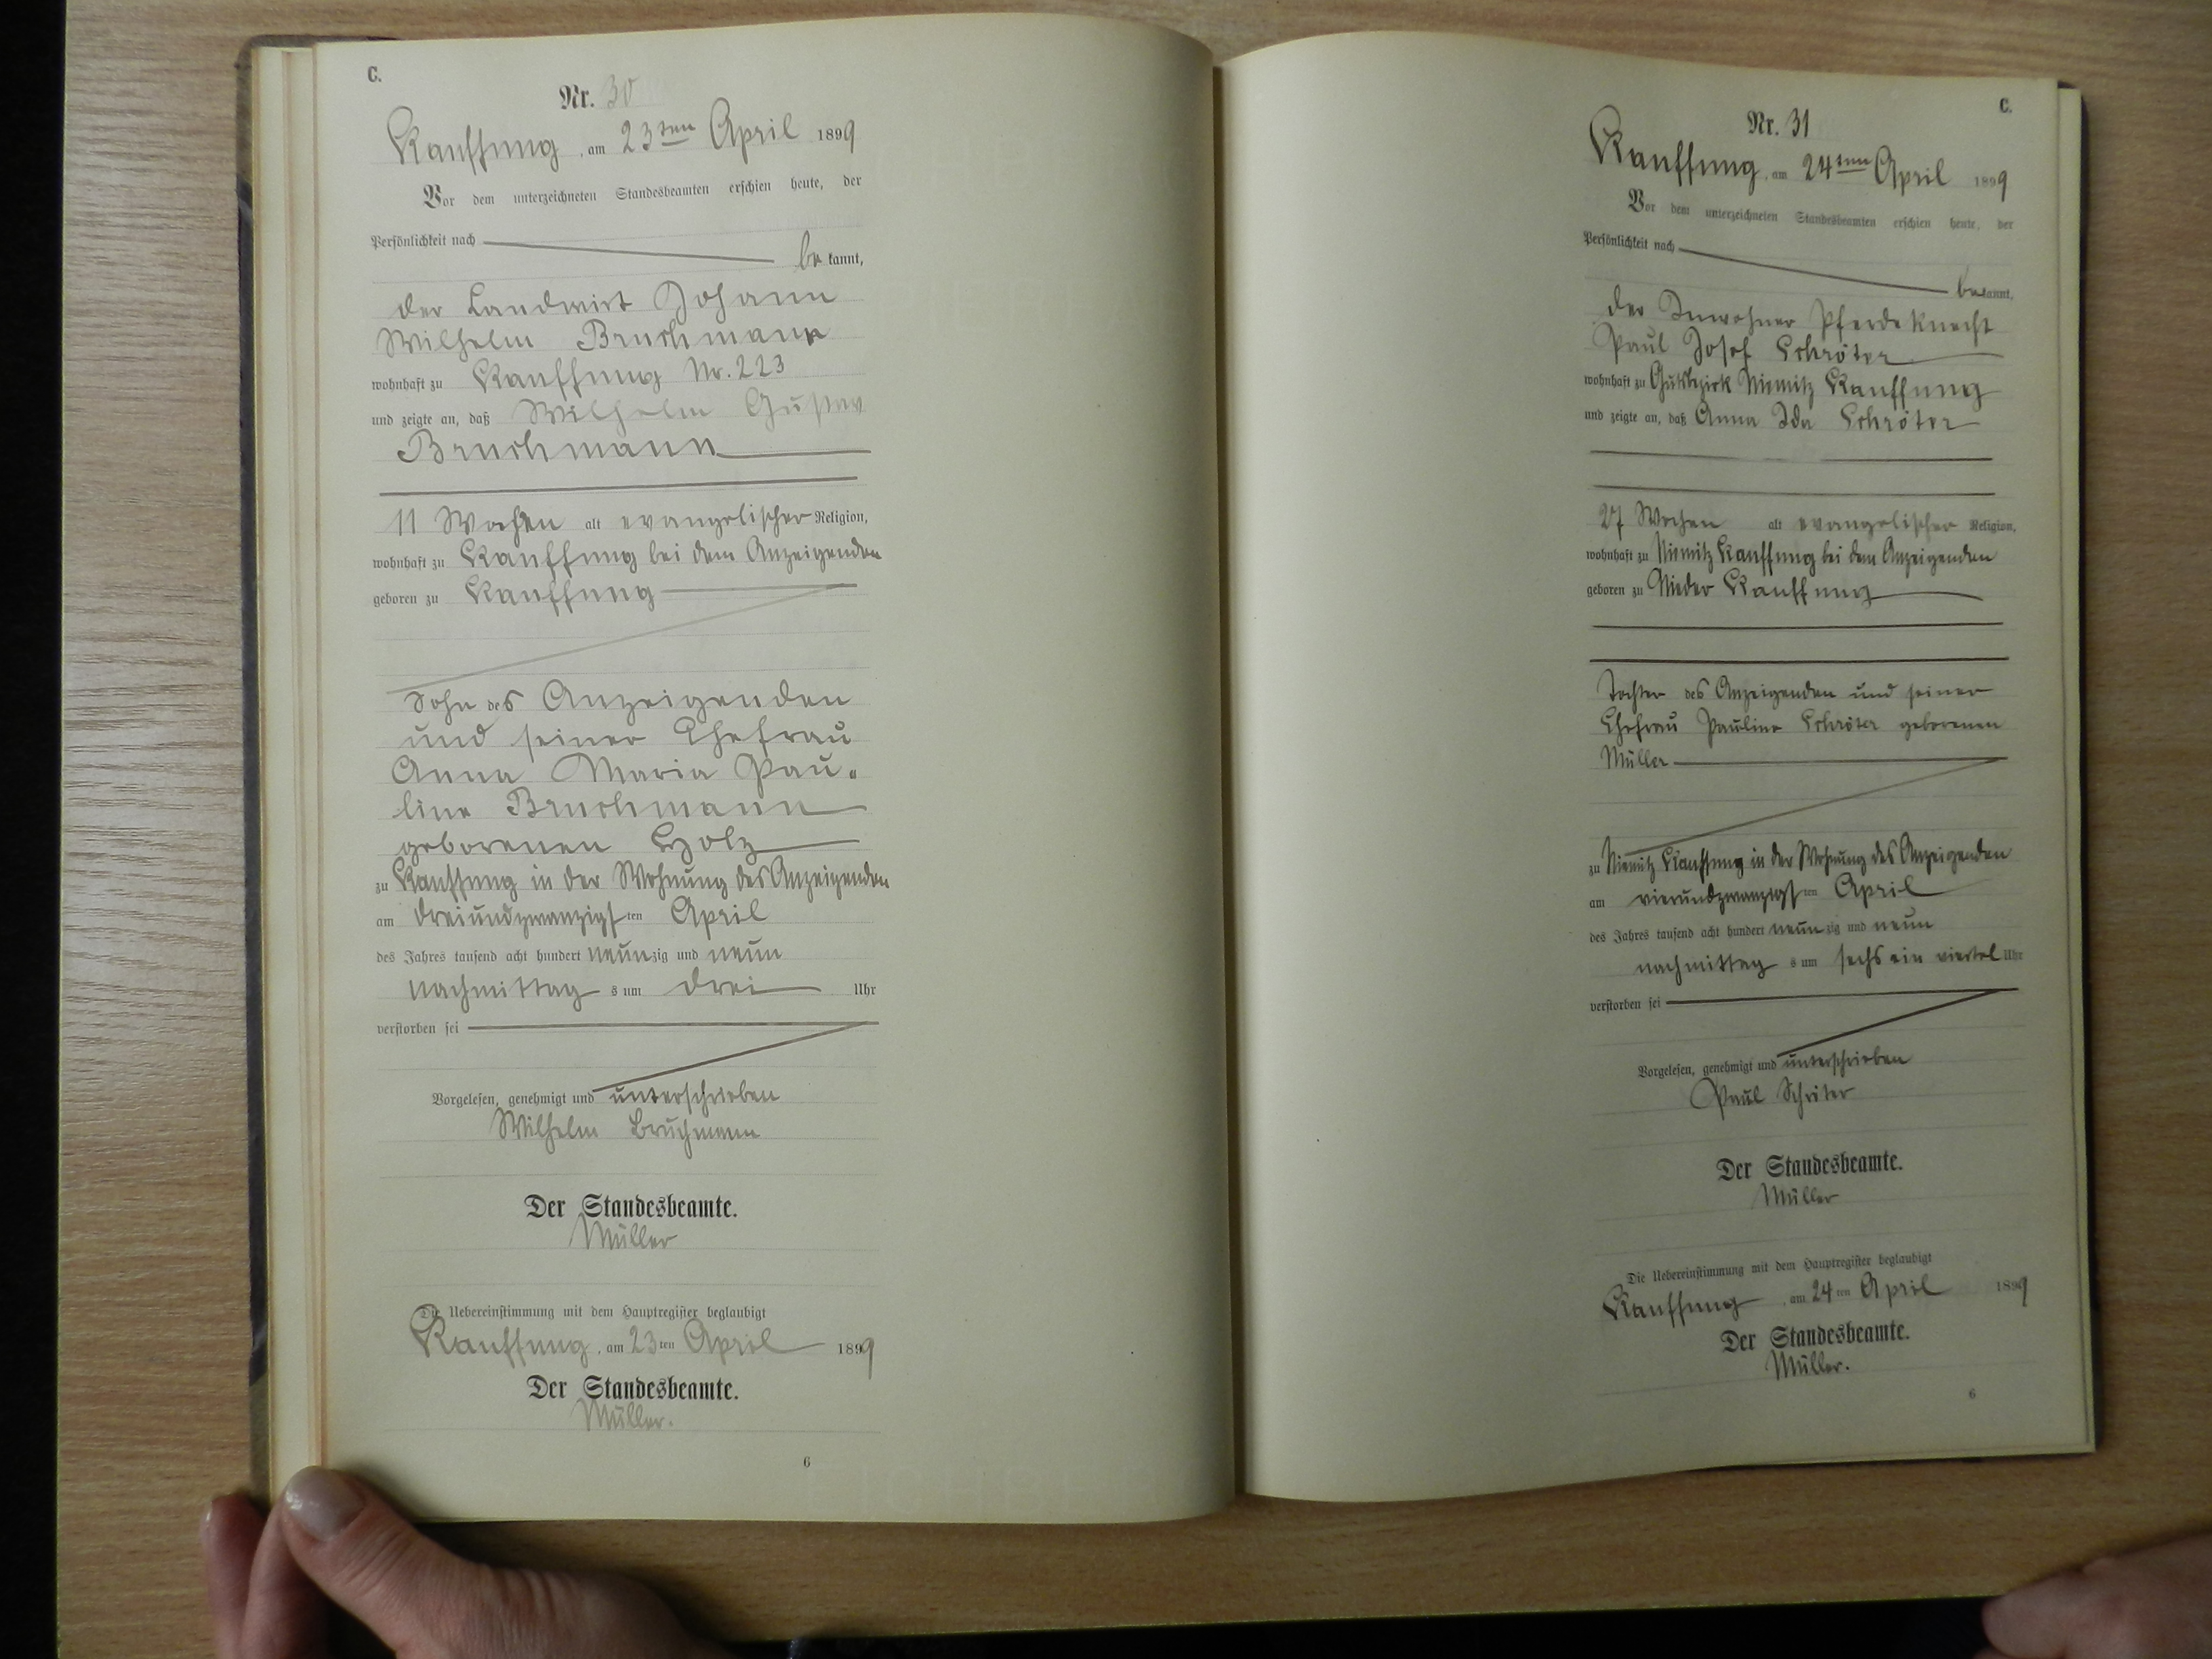 C.
Nr. 30
Kauffung, am 23ten April 1899
Vor dem unterzeichneten Standesbeamten erschien heute, der
Persönlichkeit nach
be kannt,
der Landwirt Johann
Wilhelm Bruchmann
wohnhaft zu Kauffung Nr. 223
und zeigte an, daß Wilhelm Gustav
Bruchmann
11 Wochen alt evangelischer Religion,
wohnhaft zu Kauffung bei dem Anzeigenden
geboren zu Kauffung
Sohn des Anzeigenden
und seiner Ehefrau
Anna Maria Pau-
line Bruchmann
geborenen Holz
zu Kauffung in der Wohnung des Anzeigenden
am dreiundzwanzigsten April
des Jahres tausend acht hundert neunzig und neun
nachmittag s um drei Uhr
verstorben sei
Vorgelesen, genehmigt und unterschrieben
Wilhelm Bruchmann
Der Standesbeamte.
Müller
Die Uebereinstimmung mit dem Hauptregister beglaubigt
Kauffung, am 23ten April 1899
Der Standesbeamte.
Müller.
6
C.
Nr. 31
Kauffung, am 24ten April 1899
Vor dem unterzeichneten Standesbeamten erschien heute, der
Persönlichkeit nach
bekannt,
der Inwohner Pferdeknecht
Paul Josef Schröter
wohnhaft zu Gutsbezirk Niemitz Kauffung
und zeigte an, daß Anna Ida Schröter
27 Wochen alt evangelischer Religion,
wohnhaft zu Niemitz Kauffung bei dem Anzeigenden
geboren zu Nieder Kauffung
Tochter des Anzeigenden und seiner
Ehefrau Pauline Schröter geborenen
Müller
zu Niemitz Kauffung in der Wohnung des Anzeigenden
am vierundzwanzigsten April
des Jahres tausend acht hundert neunzig und neun
nachmittag s um sechs ein viertel Uhr
verstorben sei
Vorgelesen, genehmigt und unterschrieben
Paul Schröter
Der Standesbeamte.
Müller
Die Uebereinstimmung mit dem Hauptregister beglaubigt
Kauffung, am 24ten April 1899
Der Standesbeamte.
Müller.
6